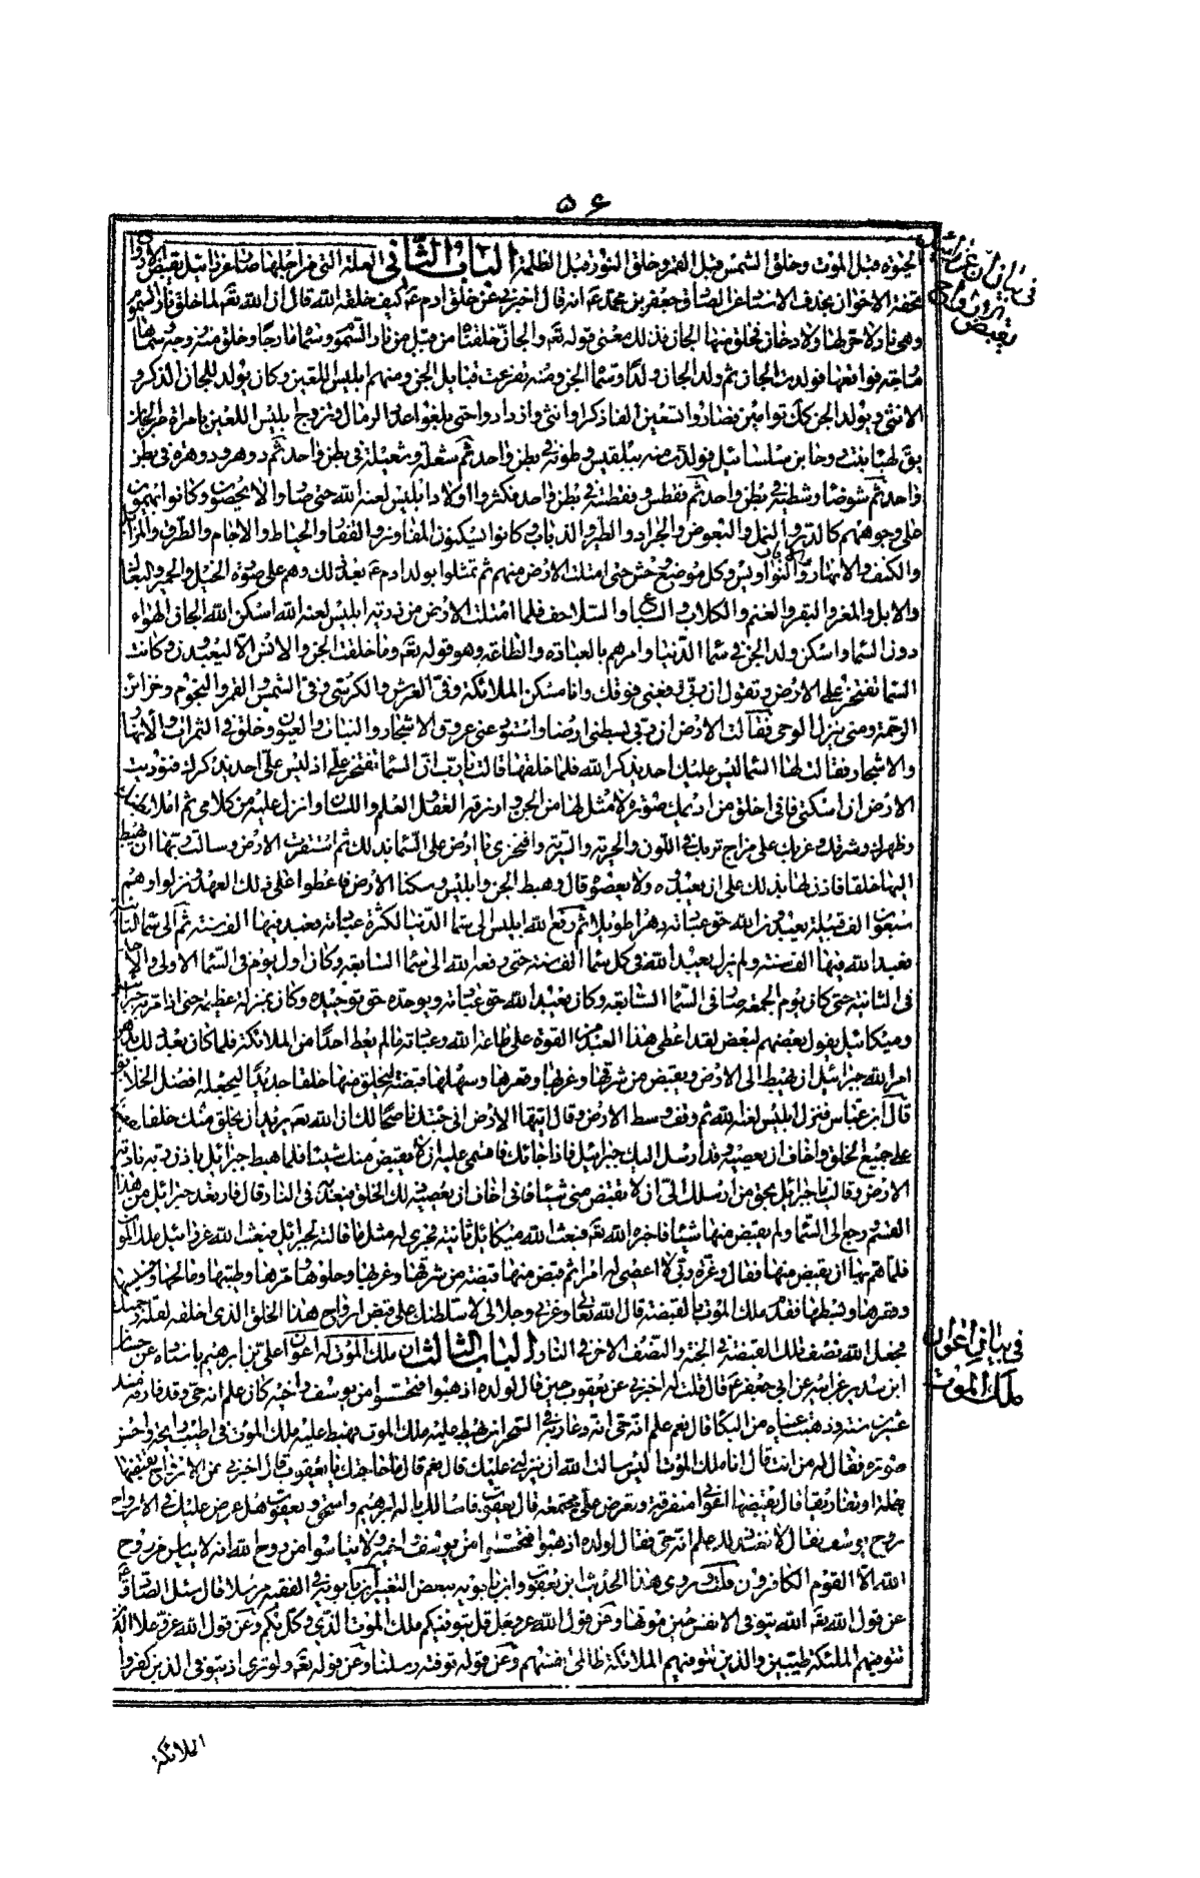 ٥٦
الحيوة قبل الموت وخلق الشمس قبل القمر وخلق النور قبل الظلمة الباب الثاني في العلة التي من اجلها صار عزرائيل يقبض الارواح
تحفة الاخوان بحذف الاسناد عن الصادق جعفر بن محمد ع انه قال اخبرني عن خلق ادم ع كيف خلقه الله قال ان الله تعه لما خلق نار السموم
وهي نار لا حر لها ولا دخان فخلق منها الجان فذلك معنى قوله تعه والجان خلقناه من قبل من نار السموم وسماه مارجا وخلق منه زوجه وسماها
مارجه فواقعها فولدت الجان ثم ولد الجان ولدا وسماه الجن ومنه تفرعت قبايل الجن ومنهم ابليس اللعين وكان يولد للجان الذكر و
الانثى ويولد الجن كك توأمين فصاروا تسعين الفا ذكرا وانثى وازدادوا حتى بلغوا عدد الرمال وتزوج ابليس اللعين بامرءة من الجان
يق لها بنت روحا بن سلسائيل فولدت منه بيلقيس وطونة في بطن واحد ثم شعلة وشعيلة في بطن واحد ثم دوهر ودوهرة في بطن
واحد ثم شوضا وشطية في بطن واحد ثم فقطس وفقطة في بطن واحد فكثروا اولاد ابليس لعنه الله حتى صاروا لا يحصون وكانوا يهيمون
على وجوههم كالذر والنمل والبعوض والجراد والطير والذباب وكانوا يسكنون المفاوز والقفار والحياض والاجام والطرق والمزابل
والكنف والانهار والنواويس وكل موضع وحش حتى امتلت الارض منهم ثم تمثلوا بولد ادم ع بعد ذلك وهم على صورة الخيل والحمير والبغال
والابل والمعز والبقر والغنم والكلاب والسباع والسلاحف فلما امتلت الارض من ذرية ابليس لعنه الله اسكن الله الجان الهواء
دون السماء واسكن ولد الجن في سماء الدنيا وامرهم بالعبادة والطاعة وهو قوله تعه وما خلقت الجن والانس الا ليعبدون وكانت
السماء تفتخر على الارض وتقول ان ربي رفعني فوقك وانا مسكن الملائكة وفي العرش والكرسي وفي الشمس والقمر والنجوم وخزائن
الرحمة ومني ينزل الوحي فقالت الارض ان ربي بسطني ارضا واستودعني عروق الاشجار والنبات والعيون وخلق في الثمرات والانهار
والاشجار فقالت لها السماء ليس عليك احد يذكر الله فلما خلقها قالت يا رب ان السماء تفتخر علي اذ ليس علي احد يذكرك فنوديت
الارض ان اسكني فاني اخلق من اديمك صورة لا مثل لها من الجن وارزقه العقل والعلم واللسان وانزل عليه من كلامي ثم املاء بطنك
وظهرك وشرقك وغربك على مزاج تربك في اللون والحرية والبرية وافتخري يا ارض على السماء بذلك ثم استقرت الارض وسالت ربها ان يهبط
اليها خلقا فاذن لها بذلك على ان يعبدوه ولا يعصوه قال وهبط الجن وابليس وسكنا الارض فاعطوا على ذلك العهد ونزلوا وهم
سبعون الف قبيلة يعبدون الله حق عبادته دهرا طويلا ثم رفع الله ابليس الى سماء الدنيا لكثرة عبادته فعبد فيها الف سنة ثم الى سماء الثانية
فعبد الله فيها الف سنة ولم يزل يعبد الله في كل سماء الف سنة حتى رفعه الله الى سماء السابعة وكان اول يوم في السماء الاولى والاحد
في الثانية حتى كان يوم الجمعة صار في السماء السابعة وكان يعبد الله حق عبادته ويوحده حق توحيده وكان بمنزلة عظيمة حتى اذا مر به جبرائيل
وميكائيل يقول بعضهم لبعض لقد اعطي هذا العبد من القوة على طاعة الله وعبادته ما لم يعط احدا من الملائكة فلما كان بعد ذلك بدهر
امر الله جبرائيل ان يهبط الى الارض ويقبض من شرقها وغربها وقعرها وسهلها قبضة ليخلق منها خلقا جديدا ليجعله افضل الخلايق
قال ابن عباس فنزل ابليس لعنه الله ثم وقف وسط الارض وقال ايتها الارض اني جئتك ناصحا لك ان الله تعه يريد ان يخلق منك خلقا
على جميع الخلق واخاف ان يعصيه وقد ارسل اليك جبرائيل فاذا جائك فاقسمي عليه ان لا يقبض منك شيئا فلما هبط جبرائيل باذن ربه نادته
الارض وقالت يا جبرائيل بحق من ارسلك الي ان لا تقبض مني شيئا فاني اخاف ان يعصيه ذلك الخلق فيعذبه في النار قال فارتعد جبرائيل من هذا
القسم ورجع الى السماء ولم يقبض منها شيئا فاخبره الله تعه فبعث الله ميكائيل ثانية فجرى له مثل ما قالت لجبرائيل فبعث الله عزرائيل ملك الموت
فلما هم بها ان يقبض منها فقال وعزة ربي لا اعصي له امرا ثم قبض منها قبضة من شرقها وغربها وحلوها ومرها وطيبها ومالحها وخسيسها
وقعرها وبسطها فقدم ملك الموت بالقبضة قال الله تعالى وعزتي وجلالي لاسلطنك على قبض ارواح هذا الخلق الذي اخلقه لقلة رحمتك
فجعل الله نصف تلك القبضة في الجنة والنصف الاخر في النار الباب الثالث ان ملك الموت له اعوان علي بن ابرهيم باسناده عن حنان
ابن سدير عن ابيه عن ابي جعفر ع قال قلت له اخبرني عن يعقوب حين قال لولده اذهبوا فتحسسوا من يوسف واخيه كان علم انه حي وقد فارقه منذ
عشرين سنة وذهبت عيناه من البكاء قال نعم علم انه حي انه دعا ربه في السحر ان يهبط عليه ملك الموت فهبط عليه ملك الموت في اطيب رايحة واحسن
صورة فقال له من انت قال انا ملك الموت اليس سالت الله ان ينزلني عليك قال نعم قال ما حاجتك يا يعقوب قال اخبرني عن الارواح تقبضها
جملة او تفاريقا قال يقبضها اعواني متفرقة وتعرض علي مجتمعة قال يعقوب فاسالك باله ابرهيم واسحق ويعقوب هل عرض عليك في الارواح
روح يوسف فقال لا فعند ذلك علم انه حي فقال لولده اذهبوا فتحسسوا من يوسف واخيه ولا تيأسوا من روح الله انه لا ييأس من روح
الله الا القوم الكافرون قلت وروى هذا الحديث ابن يعقوب وابن بابويه ببعض التغيير ابن بابويه في الفقيه مرسلا قال سئل الصادق ع
عن قول الله تعه الله يتوفى الانفس حين موتها وعن قول الله عز وجل قل يتوفيكم ملك الموت الذي وكل بكم وعن قول الله عز وعلا الذين
تتوفيهم الملئكة طيبين والذين تتوفيهم الملائكة ظالمي انفسهم وعن قوله توفته رسلنا وعن قوله تعه ولو ترى اذ يتوفى الذين كفروا
الملائكة
في بيان ان عزرائيل
يقبض الارواح
في بيان اعوان
ملك الموت